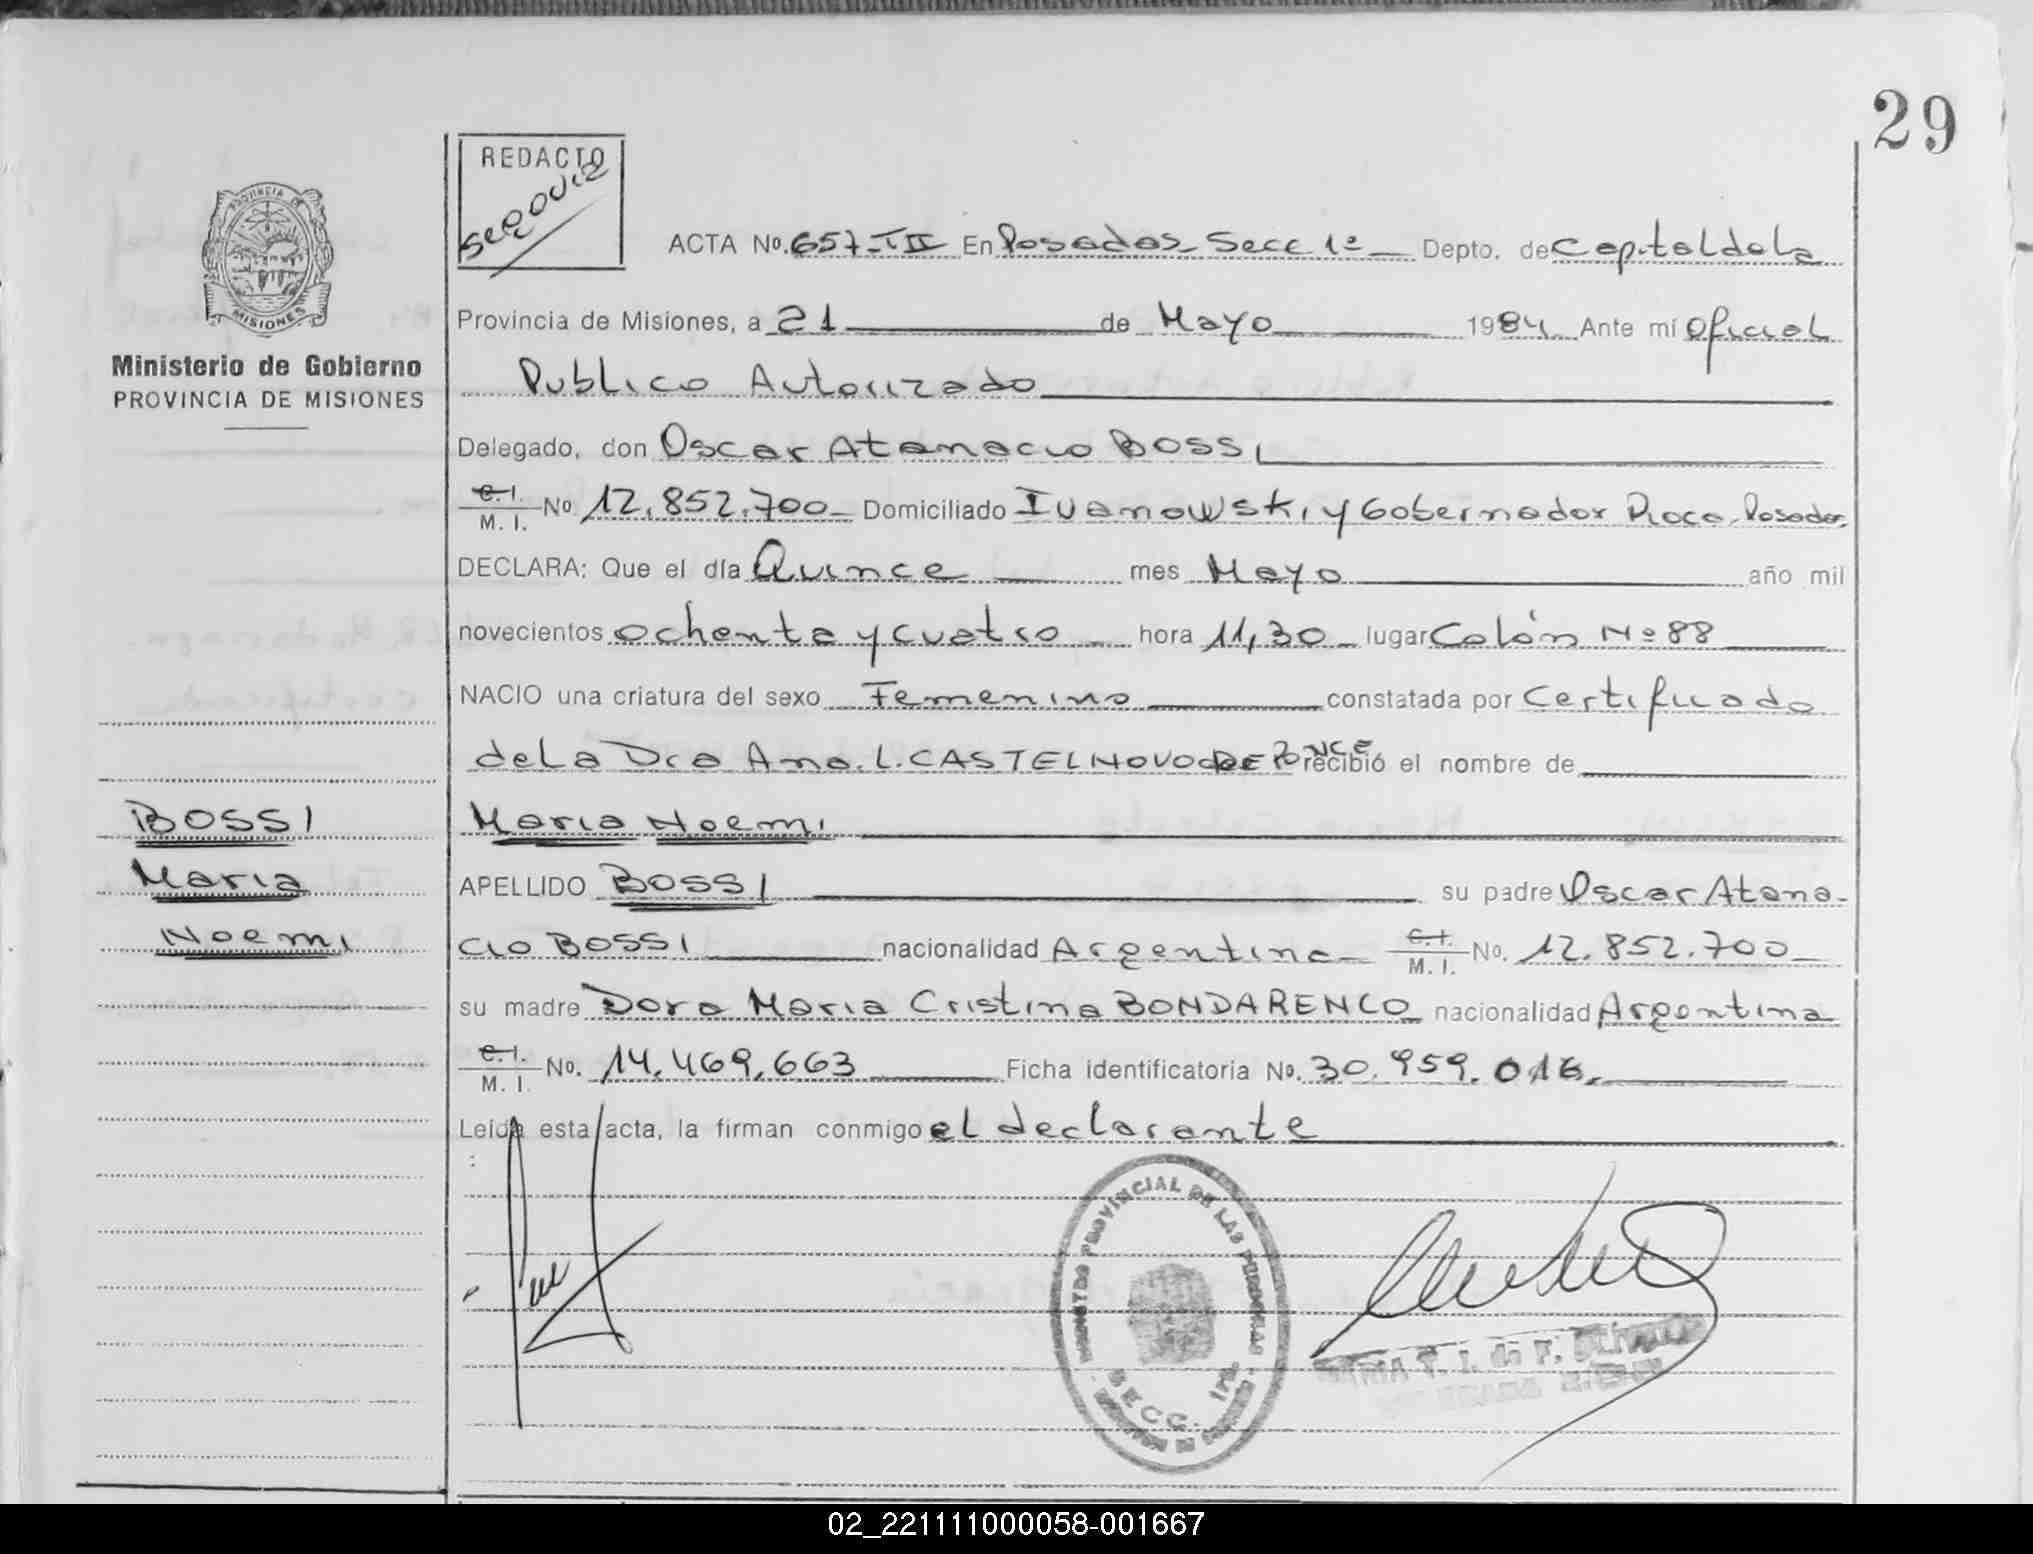 29
REDACTO
Segovia
PROVINCIA DE
MISIONES
Ministerio de Gobierno
PROVINCIA DE MISIONES
ACTA No. 657-TII En Posadas Secc 1ª Depto. de Capital de la
Provincia de Misiones, a 21 de Mayo 1984 Ante mí Oficial
Publico Autorizado
Delegado, don Oscar Atanacio BOSSI
C. I. / M. I. No. 12.852.700 Domiciliado Ivanowski y Gobernador Roca, Posadas
DECLARA: Que el día Quince mes Mayo año mil
novecientos ochenta y cuatro hora 11,30 lugar Colón Nº 88
NACIO una criatura del sexo Femenino constatada por Certificado
de la Dra Ana. L. CASTELNOVO DE PONCE recibió el nombre de
Maria Noemi
BOSSI
Maria
Noemi
APELLIDO BOSSI su padre Oscar Atana-
cio BOSSI nacionalidad Argentina C. I. / M. I. No. 12.852.700
su madre Dora Maria Cristina BONDARENCO nacionalidad Argentina
C. I. / M. I. No. 14.469.663 Ficha identificatoria No. 30.959.016
Leída esta acta, la firman conmigo el declarante
REGISTRO PROVINCIAL DE LAS PERSONAS
SECC. 1ra.
02_221111000058-001667